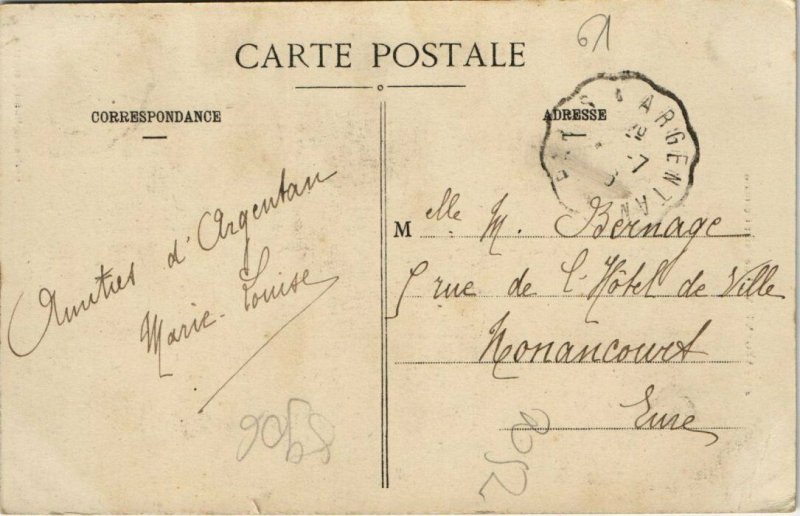 61
CARTE POSTALE
CORRESPONDANCE
ADRESSE
ARGENTAN
Amitiés d'Argentan
Marie-Louise
Melle M. Bernage
rue de l'Hôtel de Ville
Nonancourt
Eure